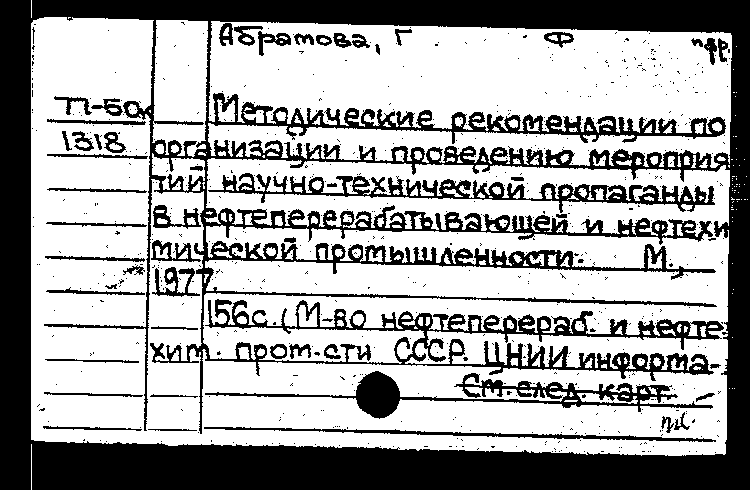 Абрамова, Г Ф
77-50к
Методические рекомендации по
1318
организации и проведению мероприя
тий научно-технической пропаганды
в нефтеперерабатывающей и нефтехи
мической промышленности. М.,
1977.
156с. (М-во нефтеперераб. и нефте-
хим. пром-сти СССР. ЦНИИ информа-
См. след. карт.